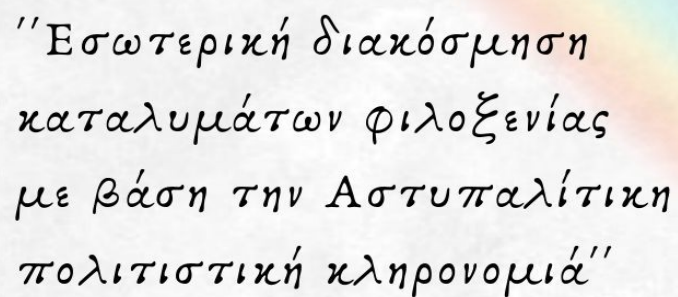 "Εσωτερική διακόσμηση
καταλυμάτων φιλοξενίας
με βάση την Αστυπαλίτικη
πολιτιστική κληρονομιά"